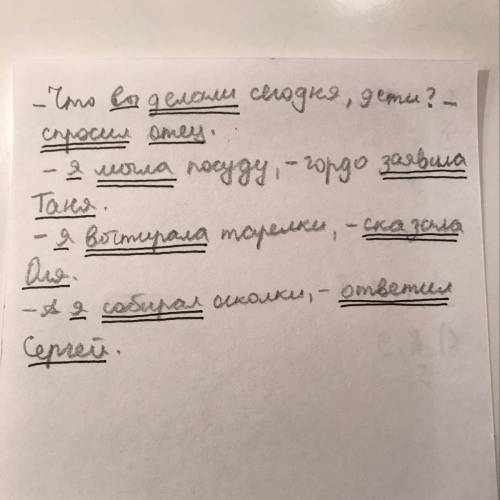 - Что вы делали сегодня, дети? -
спросил отец.
- я мыла посуду, - гордо заявила
Таня.
- я вытирала тарелки, - сказала
Оля.
- А я собирал осколки, - ответил
Сергей.